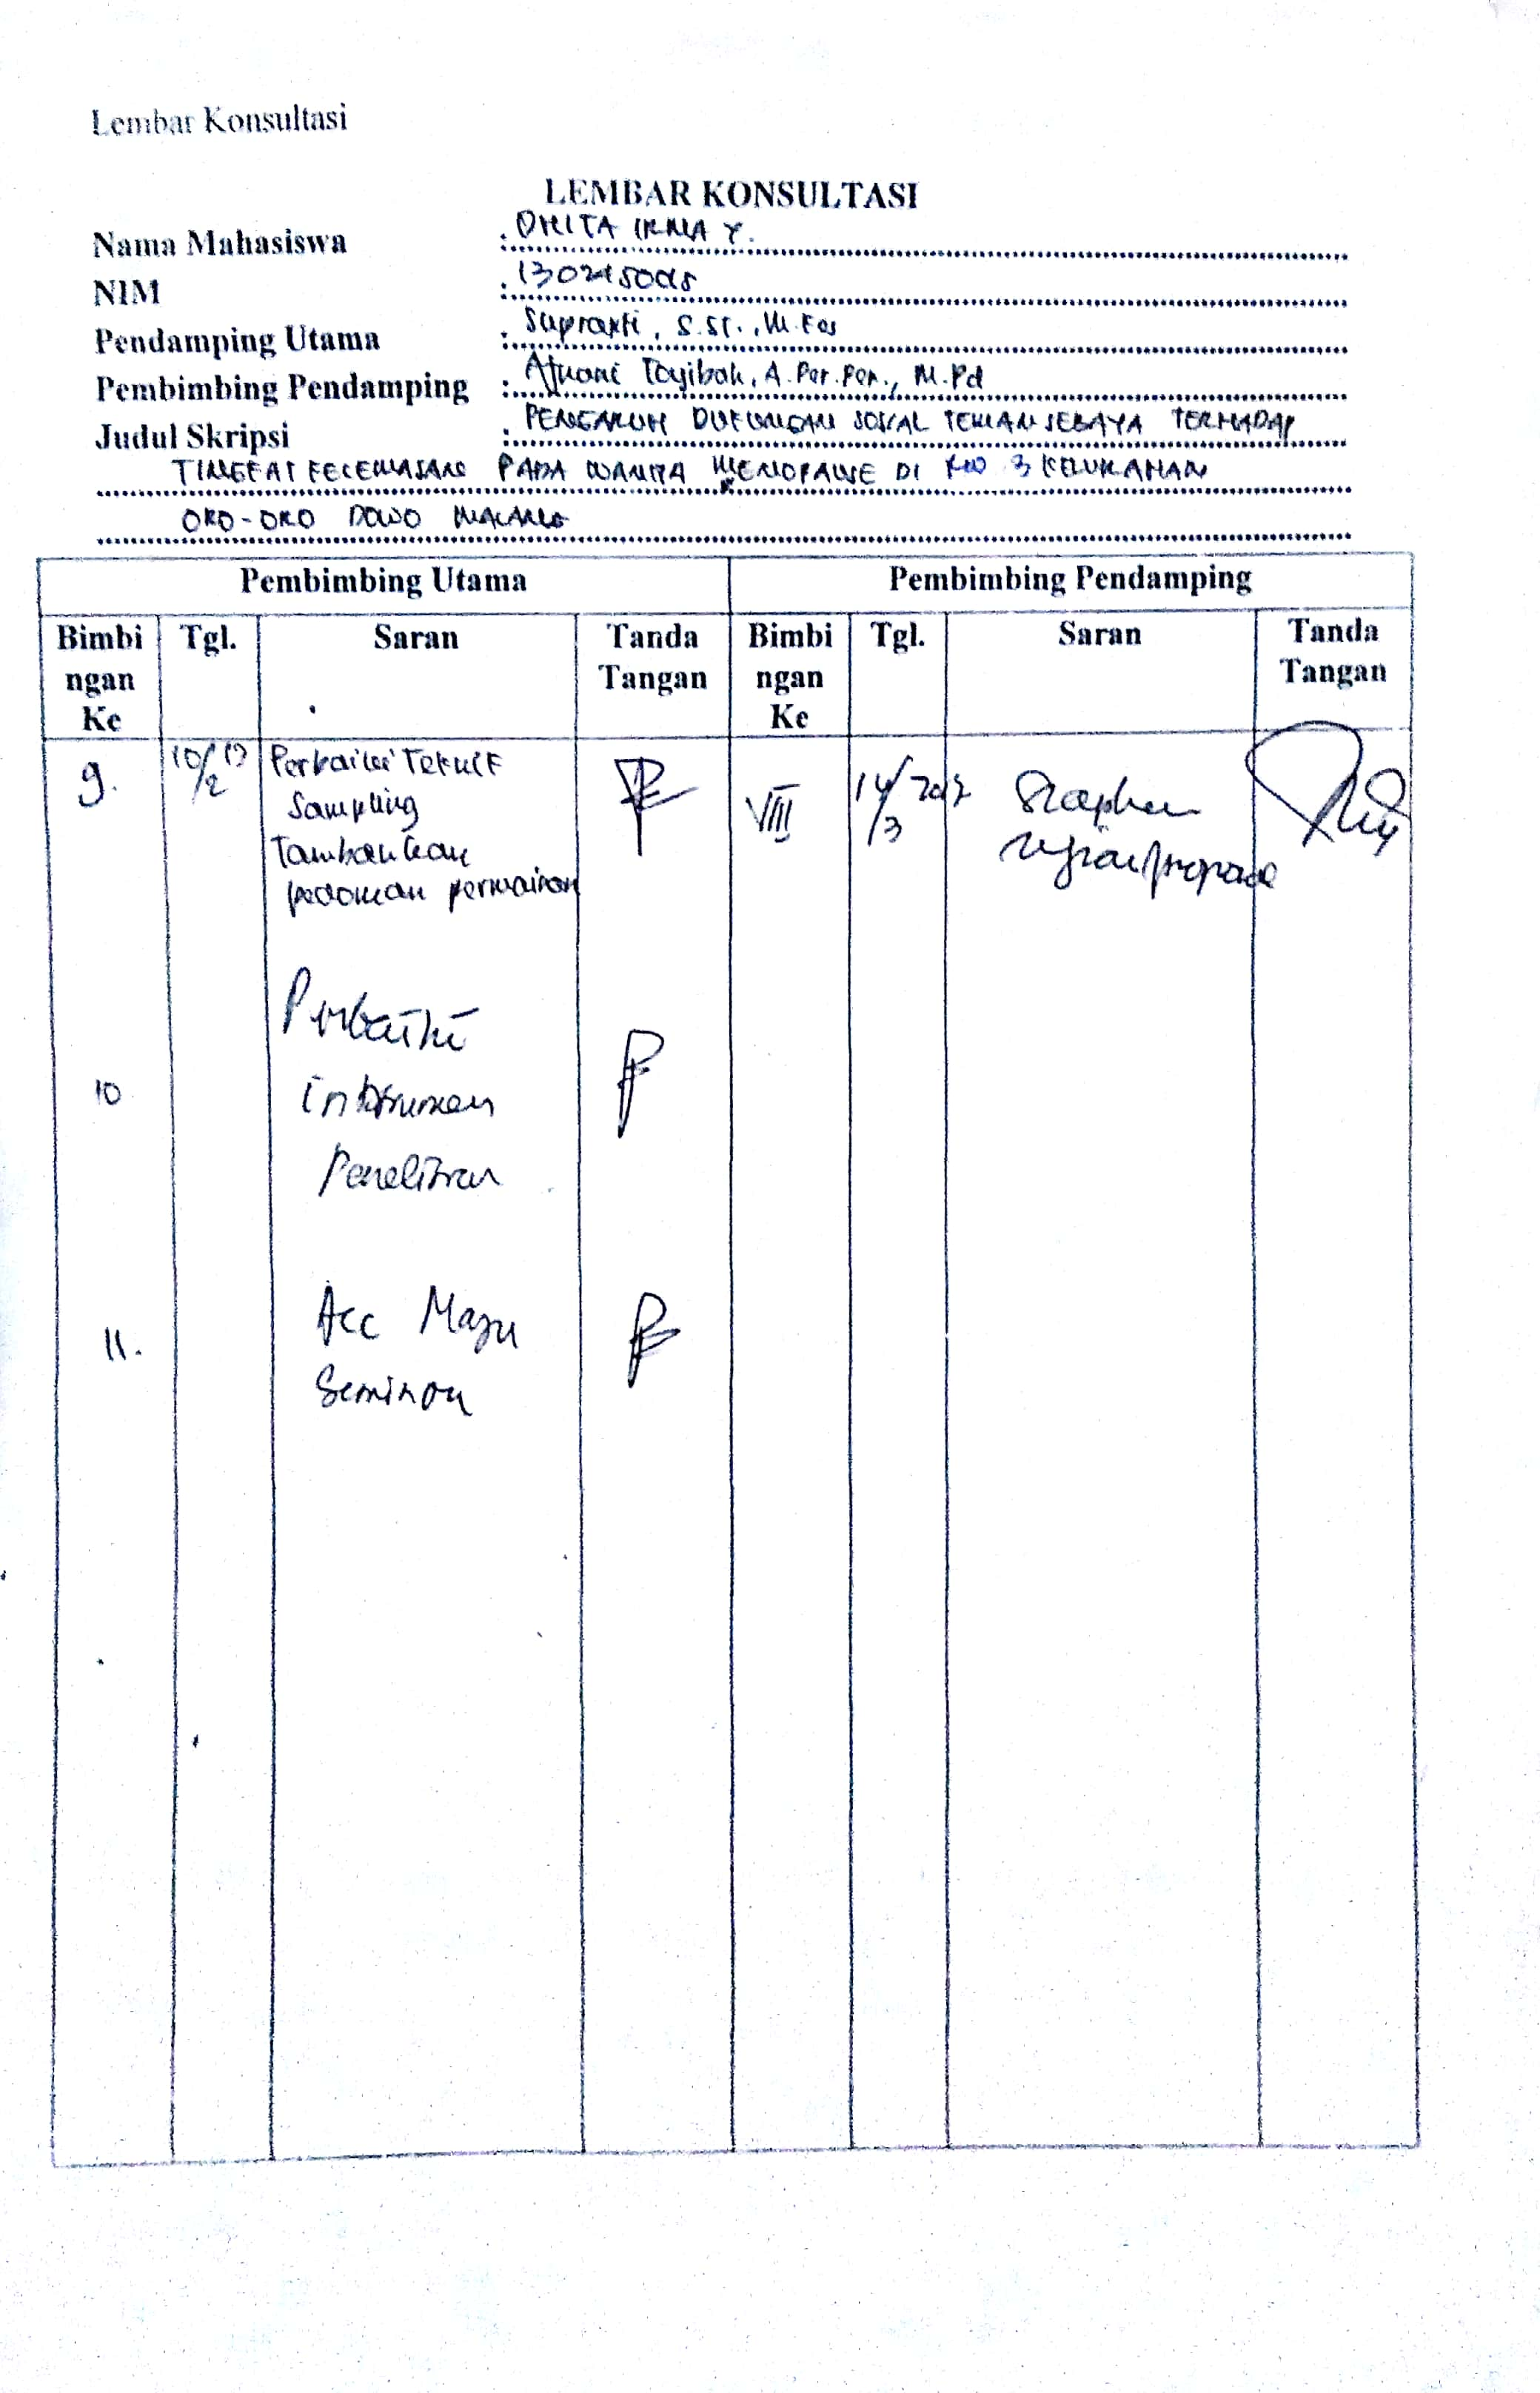 Lembar Konsultasi
LEMBAR KONSULTASI
Nama Mahasiswa : DHITA IKMA Y.
NIM :
Pendamping Utama : Suprapti, S.ST., M.Kes
Pembimbing Pendamping : Afnani Toyibah, A.Per.Pen., M.Pd
Judul Skripsi : PENGARUH DUKUNGAN SOSIAL TEMAN SEBAYA TERHADAP
TINGKAT KECEMASAN PADA WANITA MENOPAUSE DI RW 3 KELURAHAN
ORO-ORO DOWO MALANG
Pembimbing Utama Pembimbing Pendamping
Bimbi Tgl. Saran Tanda Bimbi Tgl. Saran Tanda
ngan Tangan ngan Tangan
Ke Ke
9. 10/2 17 Perbaiki Teknik VIII 14/3 2017 Siapkan
Sampling ujian proposal
Tambahkan
pedoman permainan
10 Perbaiki
instrumen
Penelitian
11. Acc Maju
Seminar